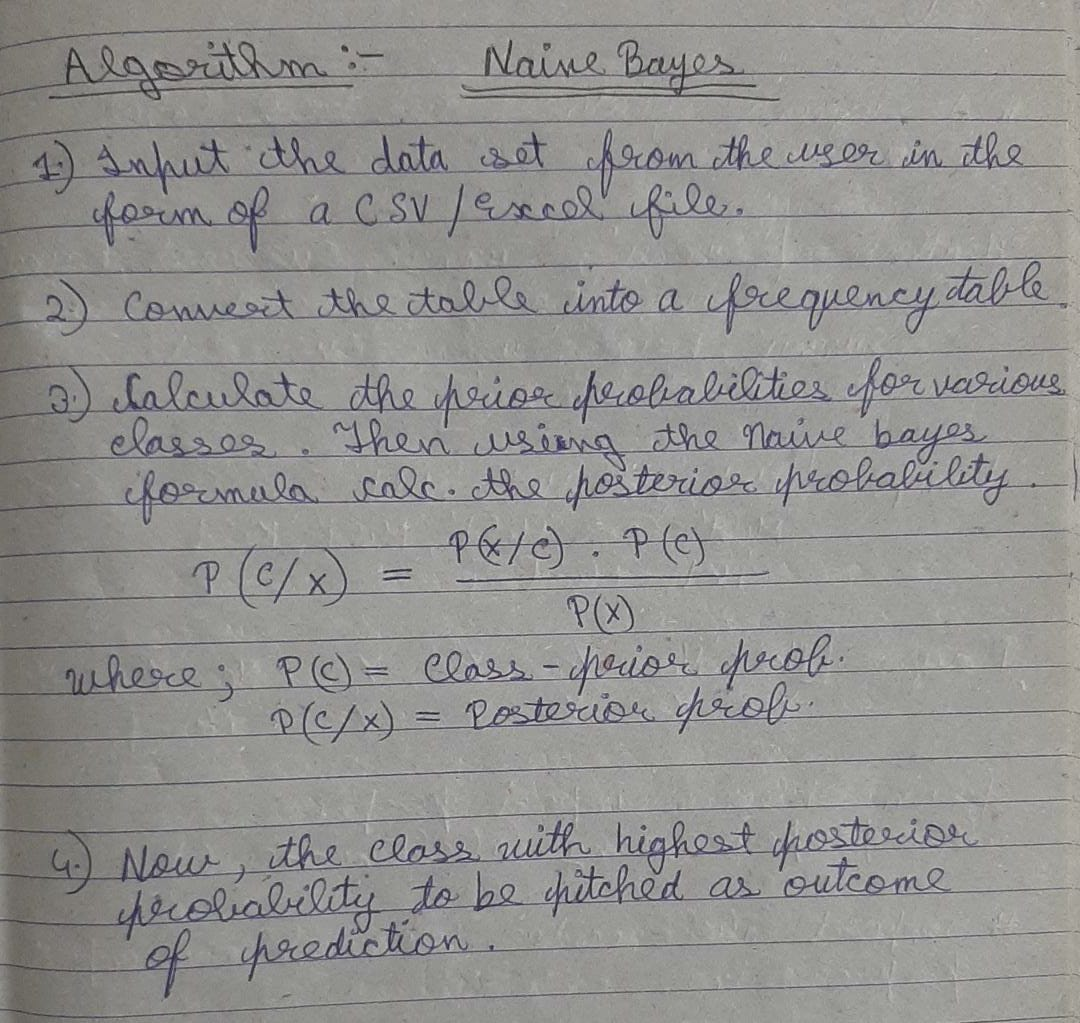 Algorithm :- Naive Bayes
1.) Input the data set from the user in the
form of a CSV / Excel file.
2.) Convert the table into a frequency table.
3.) Calculate the prior probabilities for various
classes. Then using the Naive bayes
formula calc. the posterior probability.
P(X/C) . P(C)
P(C/X) =
P(X)
where; P(C) = Class-prior prob.
P(C/X) = Posterior prob.
4.) Now, the class with highest posterior
probability to be pitched as outcome
of prediction.